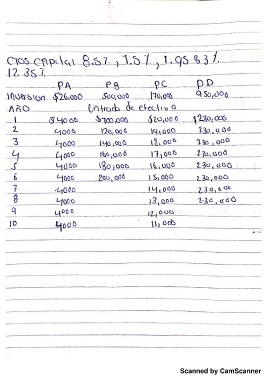 Ctos Capital 8.5%, 7.5%, 1.9583%
12.35%
PA PB PC PD
Inversion $26,000 500,000 170,000 950,000
Año Entrada de efectivo
1 $4000 $100,000 $20,000 $230,000
2 4000 120,000 19,000 230,000
3 4000 140,000 18,000 230,000
4 4000 160,000 17,000 230,000
5 4000 180,000 16,000 230,000
6 4000 200,000 15,000 230,000
7 4000 14,000 230,000
8 4000 13,000 230,000
9 4000 12,000
10 4000 11,000
Scanned by CamScanner